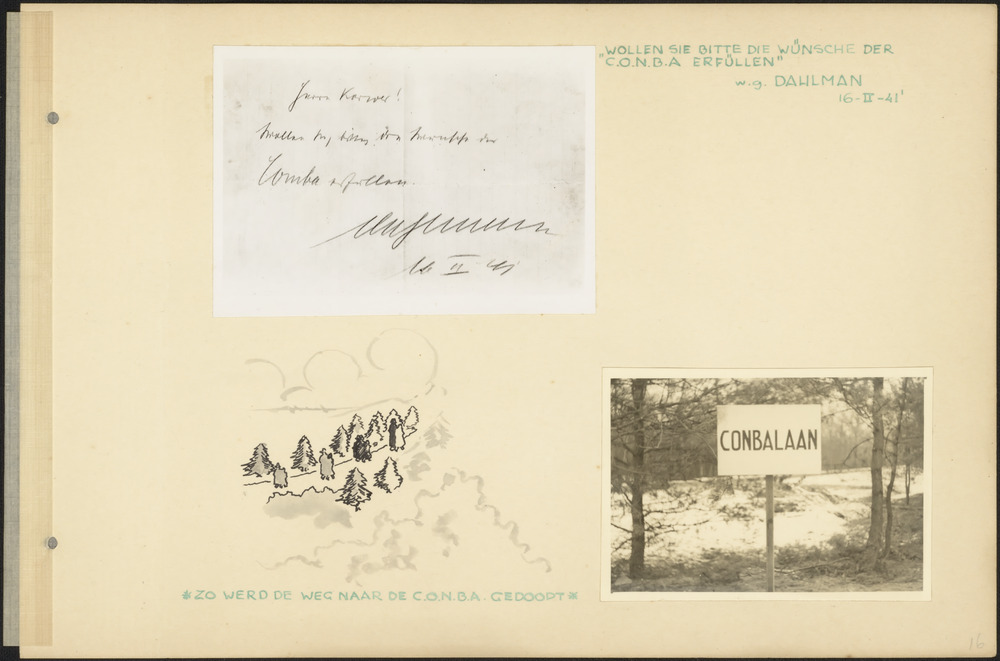 Herrn Korver!
Wollen Sie bitte die Wünsche der
Comba erfüllen.
16 II 41
"WOLLEN SIE BITTE DIE WÜNSCHE DER
C.O.N.B.A ERFÜLLEN"
w.g. DAHLMAN
16-II-41'
CONBALAAN
*ZO WERD DE WEG NAAR DE C.O.N.B.A. GEDOOPT*
16